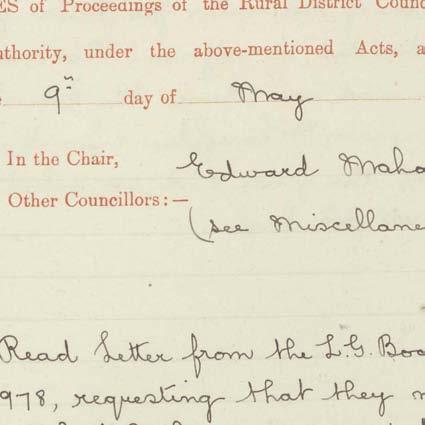 ES of Proceedings of the Rural District Counc
uthority, under the above-mentioned Acts, a
9th day of May
In the Chair, Edward Maho
Other Councillors:— (see Miscellane
Read Letter from the L.G. Boa
978, requesting that they